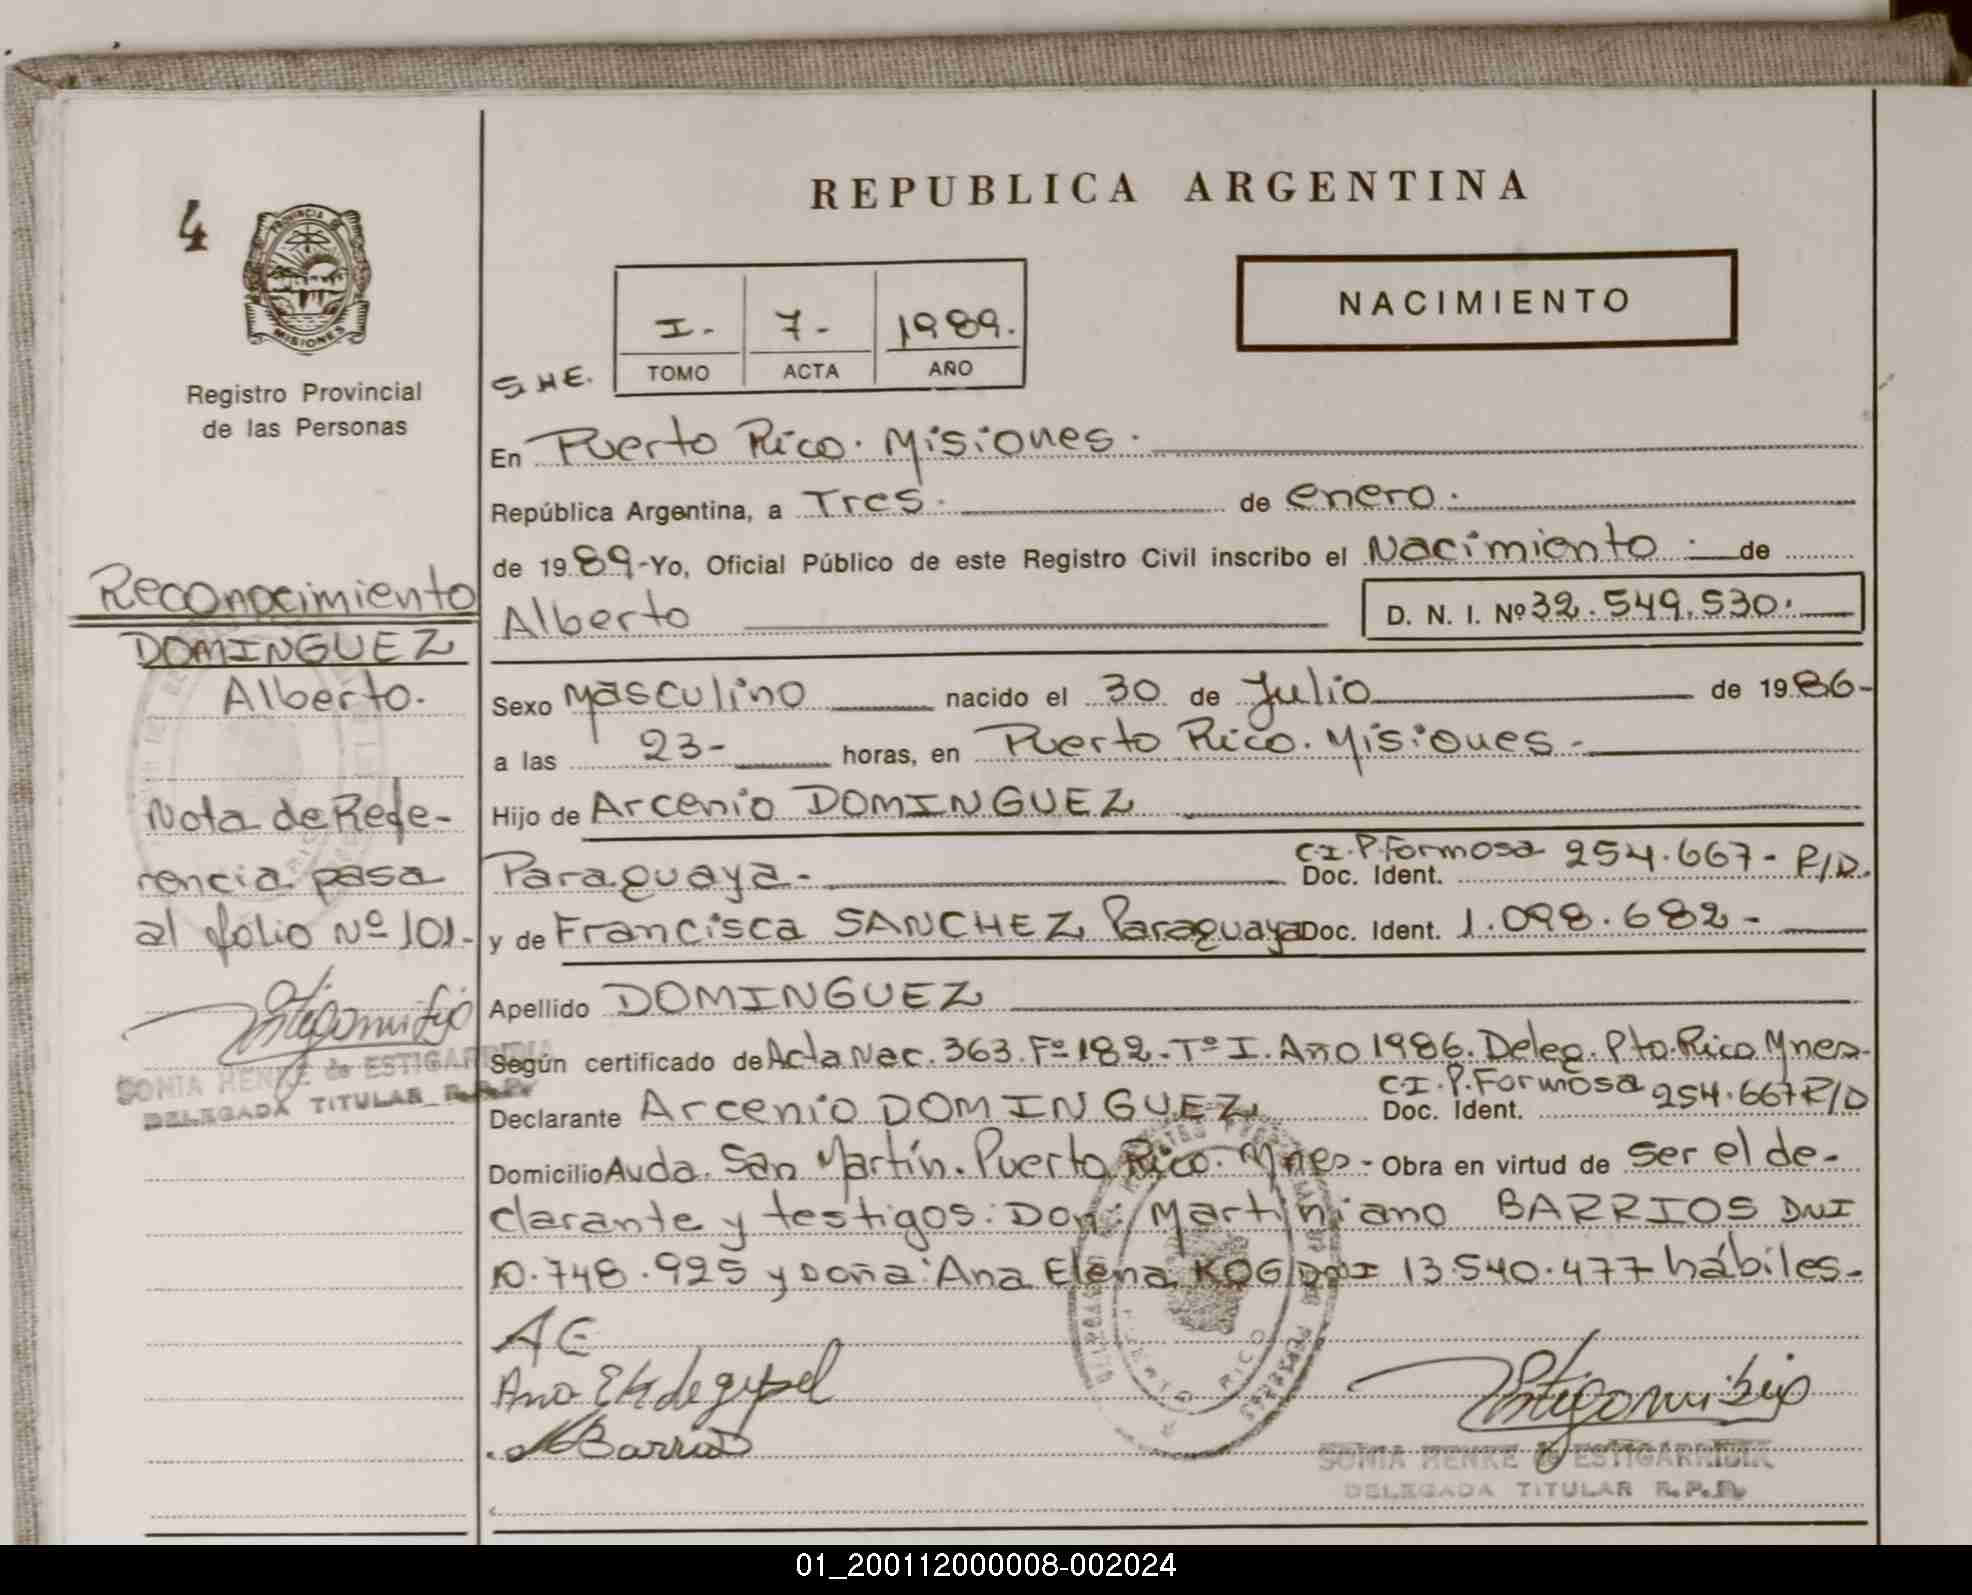 4
PROVINCIA DE
MISIONES
Registro Provincial
de las Personas
Reconocimiento
DOMINGUEZ
Alberto.
Nota de Refe-
rencia pasa
al folio Nº 101.-
SONIA HENKE de ESTIGARRIBIA
DELEGADA TITULAR R.P.P.
REPUBLICA ARGENTINA
NACIMIENTO
I.- 7.- 1989.
TOMO ACTA AÑO
S.H.E.
En Puerto Rico. Misiones.
República Argentina, a Tres. de enero.
de 1989-Yo, Oficial Público de este Registro Civil inscribo el Nacimiento. de
Alberto D. N. I. Nº 32.549.530.
Sexo Masculino nacido el 30 de Julio de 1986-
a las 23- horas, en Puerto Rico. Misiones.-
Hijo de Arcenio DOMINGUEZ
C.I.P. Formosa 254.667- R/D.
Paraguaya.- Doc. Ident.
y de Francisca SANCHEZ, Paraguaya Doc. Ident. 1.098.682-
Apellido DOMINGUEZ
Según certificado de Acta Nac. 363. Fº 182.-Tº I. Año 1986. Deleg. Pto. Rico Mnes.-
C.I.P. Formosa 254.667 R/D
Declarante Arcenio DOMINGUEZ, Doc. Ident.
Domicilio Avda. San Martín. Puerto Rico. Mnes- Obra en virtud de ser el de-
clarante y testigos: Don: Martiniano BARRIOS DNI
10.748.925 y Doña: Ana Elena KOG DNI 13.540.477 hábiles.-
Barrios
SONIA HENKE de ESTIGARRIBIA
DELEGADA TITULAR R.P.P.
01_200112000008-002024